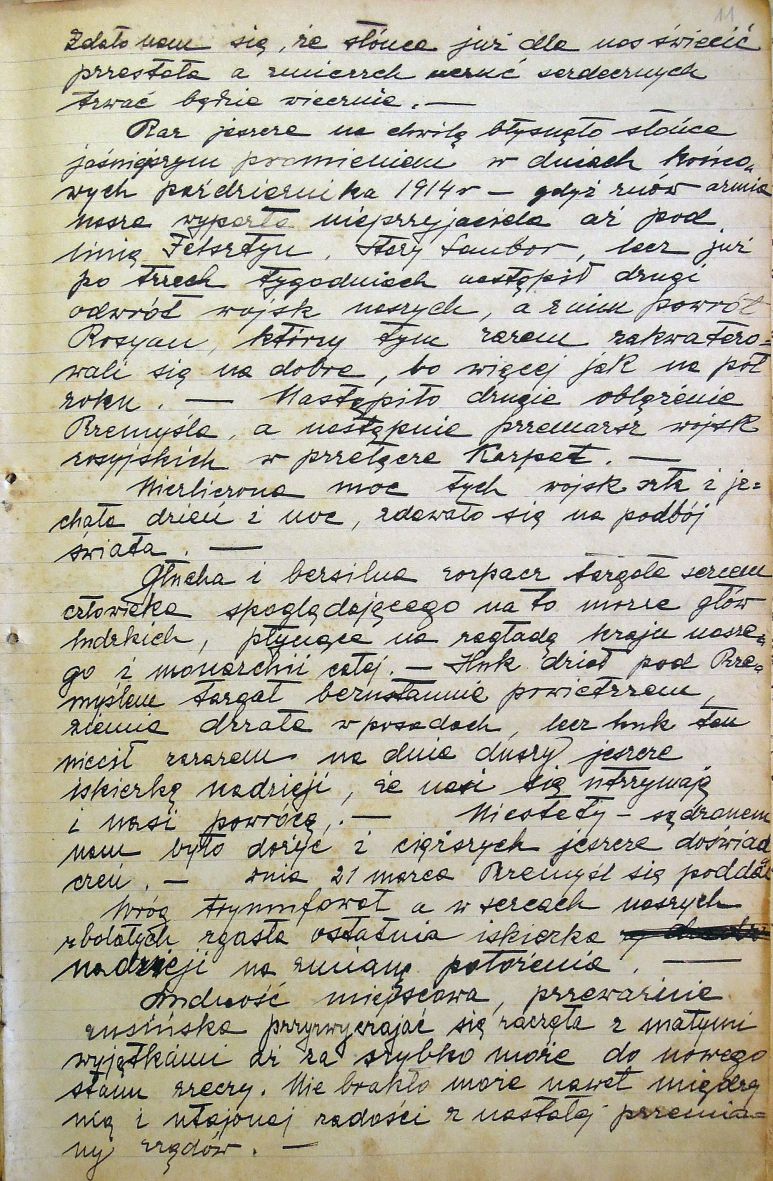 11
Zdało nam się, że słońce już dla nas świecić
przestało a zmierzch uczuć serdecznych
trwać będzie wiecznie. —
Raz jeszcze na chwilę błysnęło słońce
jaśniejszym promieniem w dniach końco-
wych października 1914 r — gdyż znów armia
nasza wyparła nieprzyjaciela aż pod
linię Felsztyn, Stary Sambor, lecz już
po trzech tygodniach nastąpił drugi
odwrót wojsk naszych, a z nim powrót
Rosyan, którzy tym razem zakwatero-
wali się na dobre, bo więcej jak na pół
roku. — Nastąpiło drugie oblężenie
Przemyśla, a następnie przemarsz wojsk
rosyjskich w przełęcze Karpat. —
Niezliczona moc tych wojsk szła i je=
chała dzień i noc, zdawało się na podbój
świata. —
Głucha i bezsilna rozpacz targała sercem
człowieka spoglądającego na to morze głów
ludzkich, płynące na zagładę kraju nasze-
go i monarchii całej. — Huk dział pod Prze-
myślem targał bezustannie powietrzem,
ziemia drżała w posadach, lecz huk ten
niecił zarazem na dnie duszy jeszcze
iskierkę nadzieji, że nasi się utrzymają
i nasi powrócą. — Niestety — sądzonem
nam było dożyć i cięższych jeszcze doświad
czeń. — dnia 21 marca Przemyśl się poddał
Wróg tryumfował a w sercach naszych
zbolałych zgasła ostatnia iskierka
nadzieji na zmianę położenia. —
Ludność miejscowa, przeważnie
rusińska przyzwyczajać się zaczęła z małymi
wyjątkami aż za szybko może do nowego
stanu rzeczy. Nie brakło może nawet między
nią i utajonej radości z nastałej przemia=
ny rządów. —